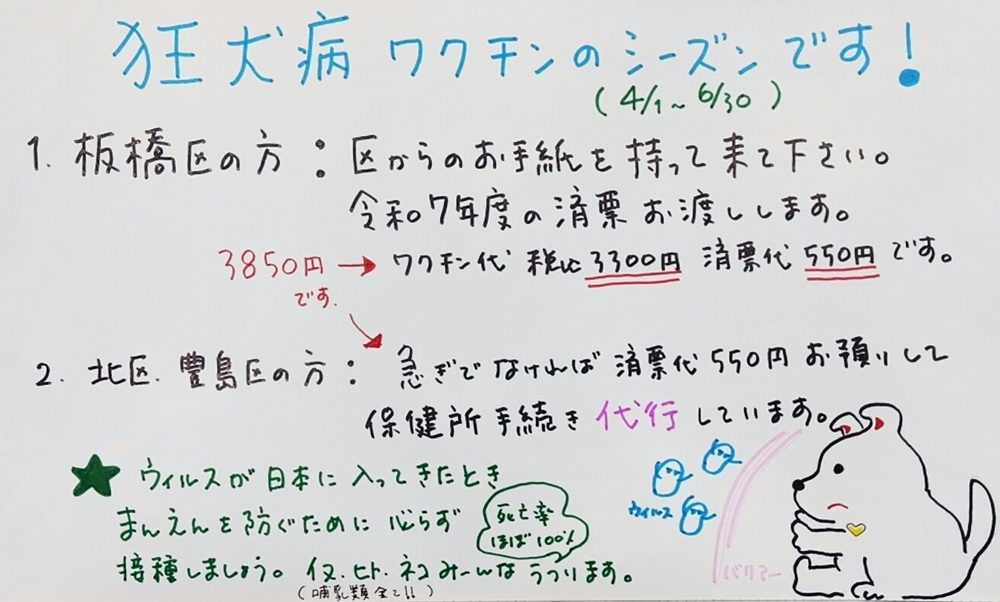 狂犬病ワクチンのシーズンです!
(4/1~6/30)
1. 板橋区の方:区からのお手紙を持って来て下さい。
令和7年度の済票お渡しします。
3850円 → ワクチン代 税込3300円 済票代550円です。
です。
2. 北区.豊島区の方:急ぎでなければ済票代550円お預りして
保健所手続き代行しています。
★ ウィルスが日本に入ってきたとき
まんえんを防ぐために必らず
死亡率
ほぼ100%
接種しましょう。イヌ.ヒト.ネコみーんなうつります。
(哺乳類全て!!)
ウィルス
バリアー